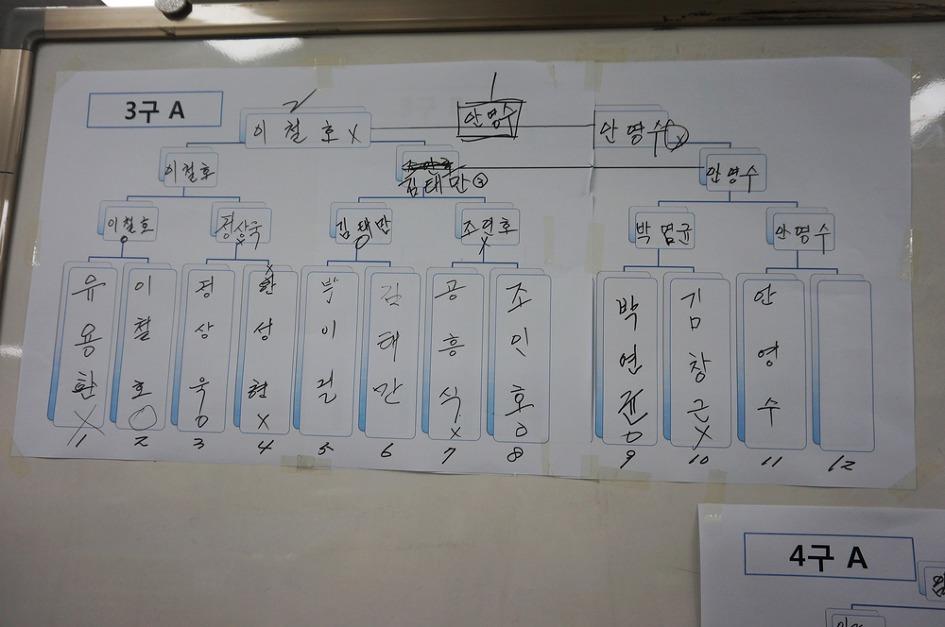 3구 A
1
안영수
2
이철호 X
안영수 X
이철호
김태만 ③
안영수
이철호
정상욱
X
김태만
조인호
X
박연균
안영수
유용환
X
이철호
O
정상욱
O
한성현
X
박이
김태만
공흥식
X
조인호
O
박연균
O
김창근
X
안영수
1 2 3 4 5 6 7 8 9 10 11 12
4구 A